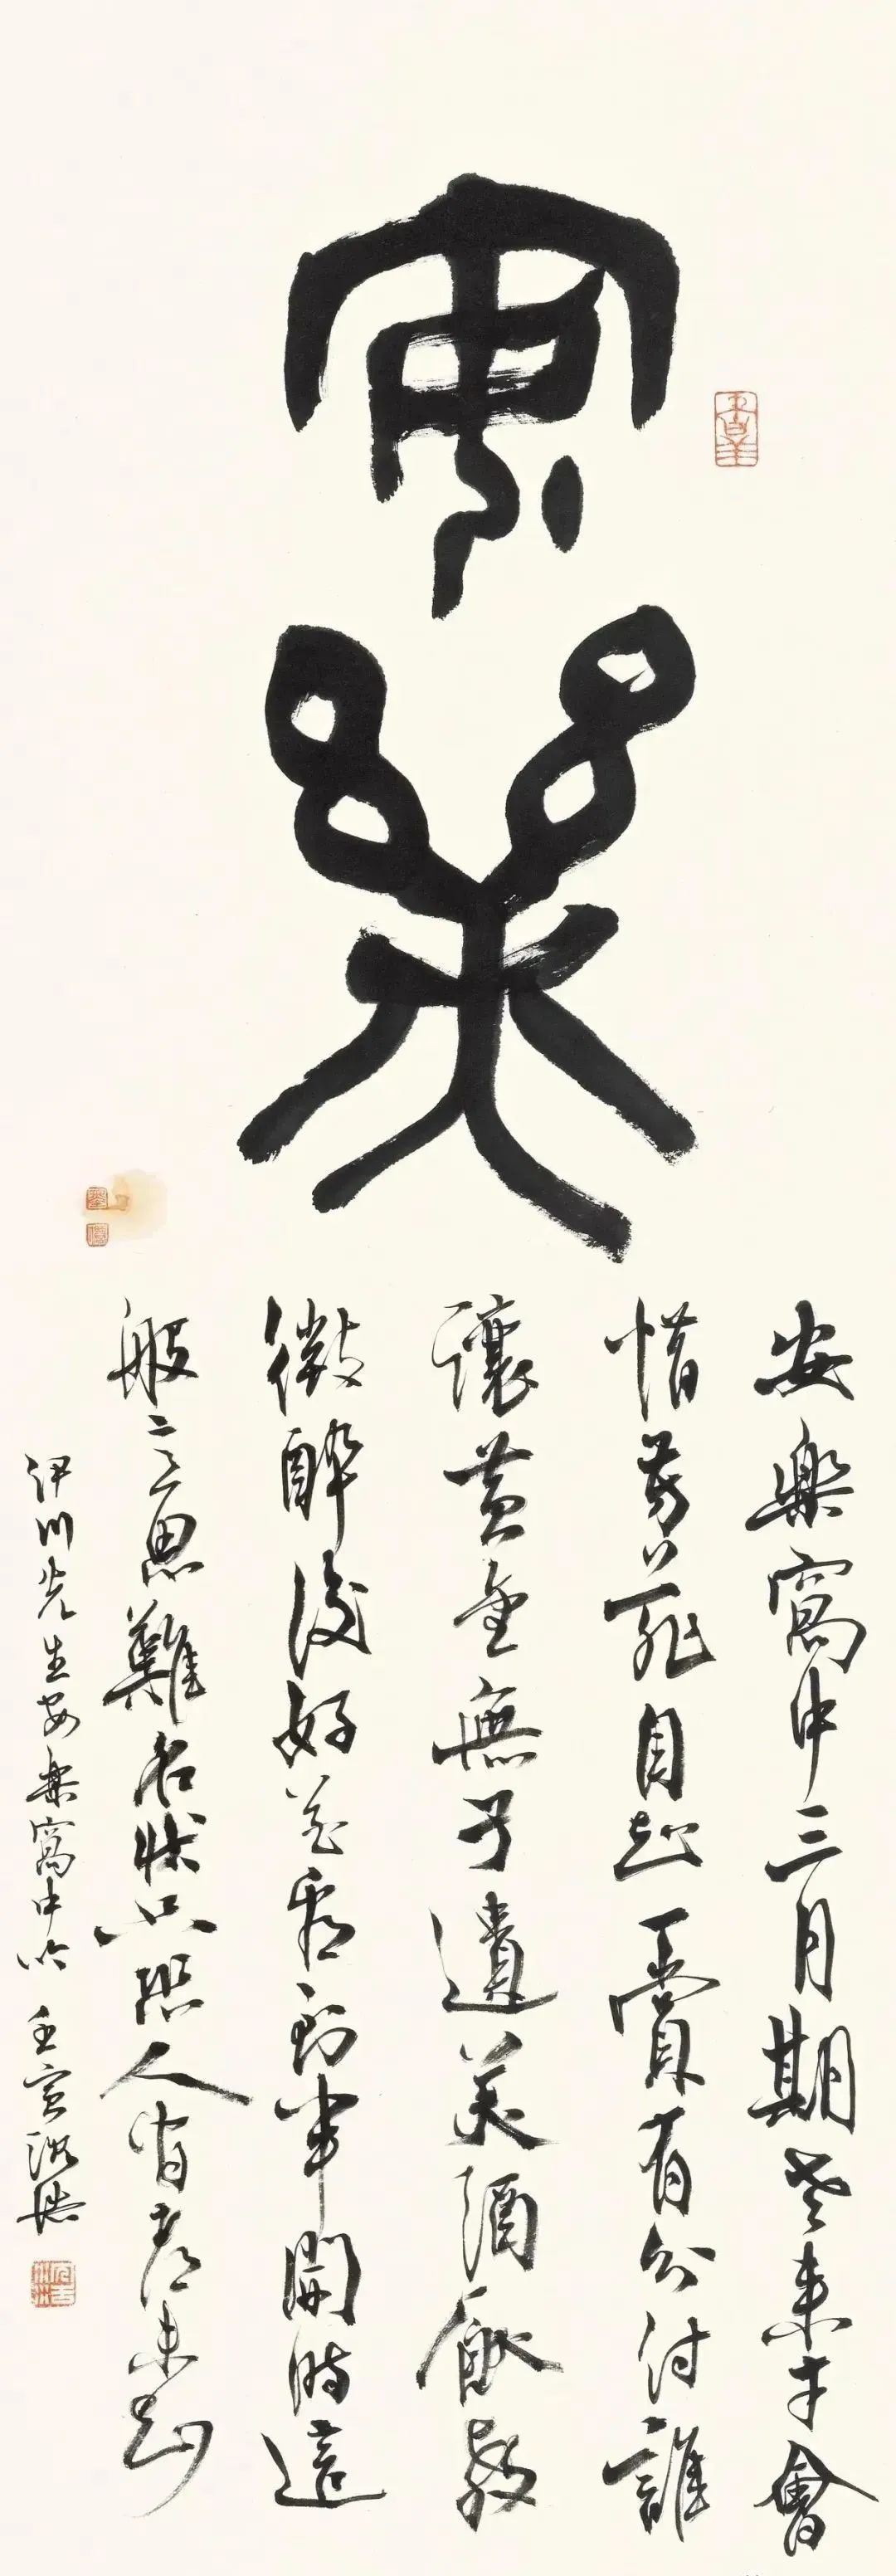 安樂
安樂窩中三月期老來才會
惜芳菲自賞有分付誰
讓黃金無孑遺美酒飲教
微醉後好花看到半開時這
般意思難名狀只恐人間都未知
伊川先生安樂窩中吟 壬寅